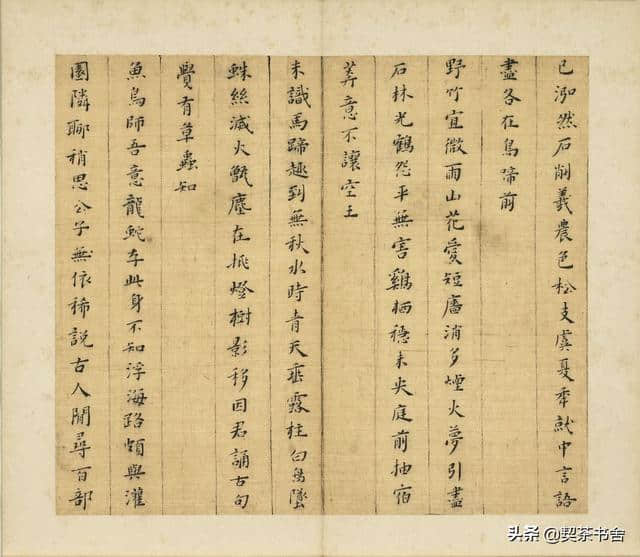 已泓然石削義農色松支虞夏年就中言語
盡各在鳥蹄前
野竹宜微雨山花愛短廬消多煙火夢引盡
石林光鶴怨平無害鷄栖穩未央庭前抽宿
莾意不讓空王
未識馬蹄趣到無秋水時青天垂露柱白鳥墜
蛛絲滅火甑塵在挑燈樹影移因君誦古句
覺有草蟲知
魚鳥師吾意龍蛇存此身不知浮海路頗與灌
園隣聊稍思公子無依稀說古人閒尋百部
头条 @契茶书舍